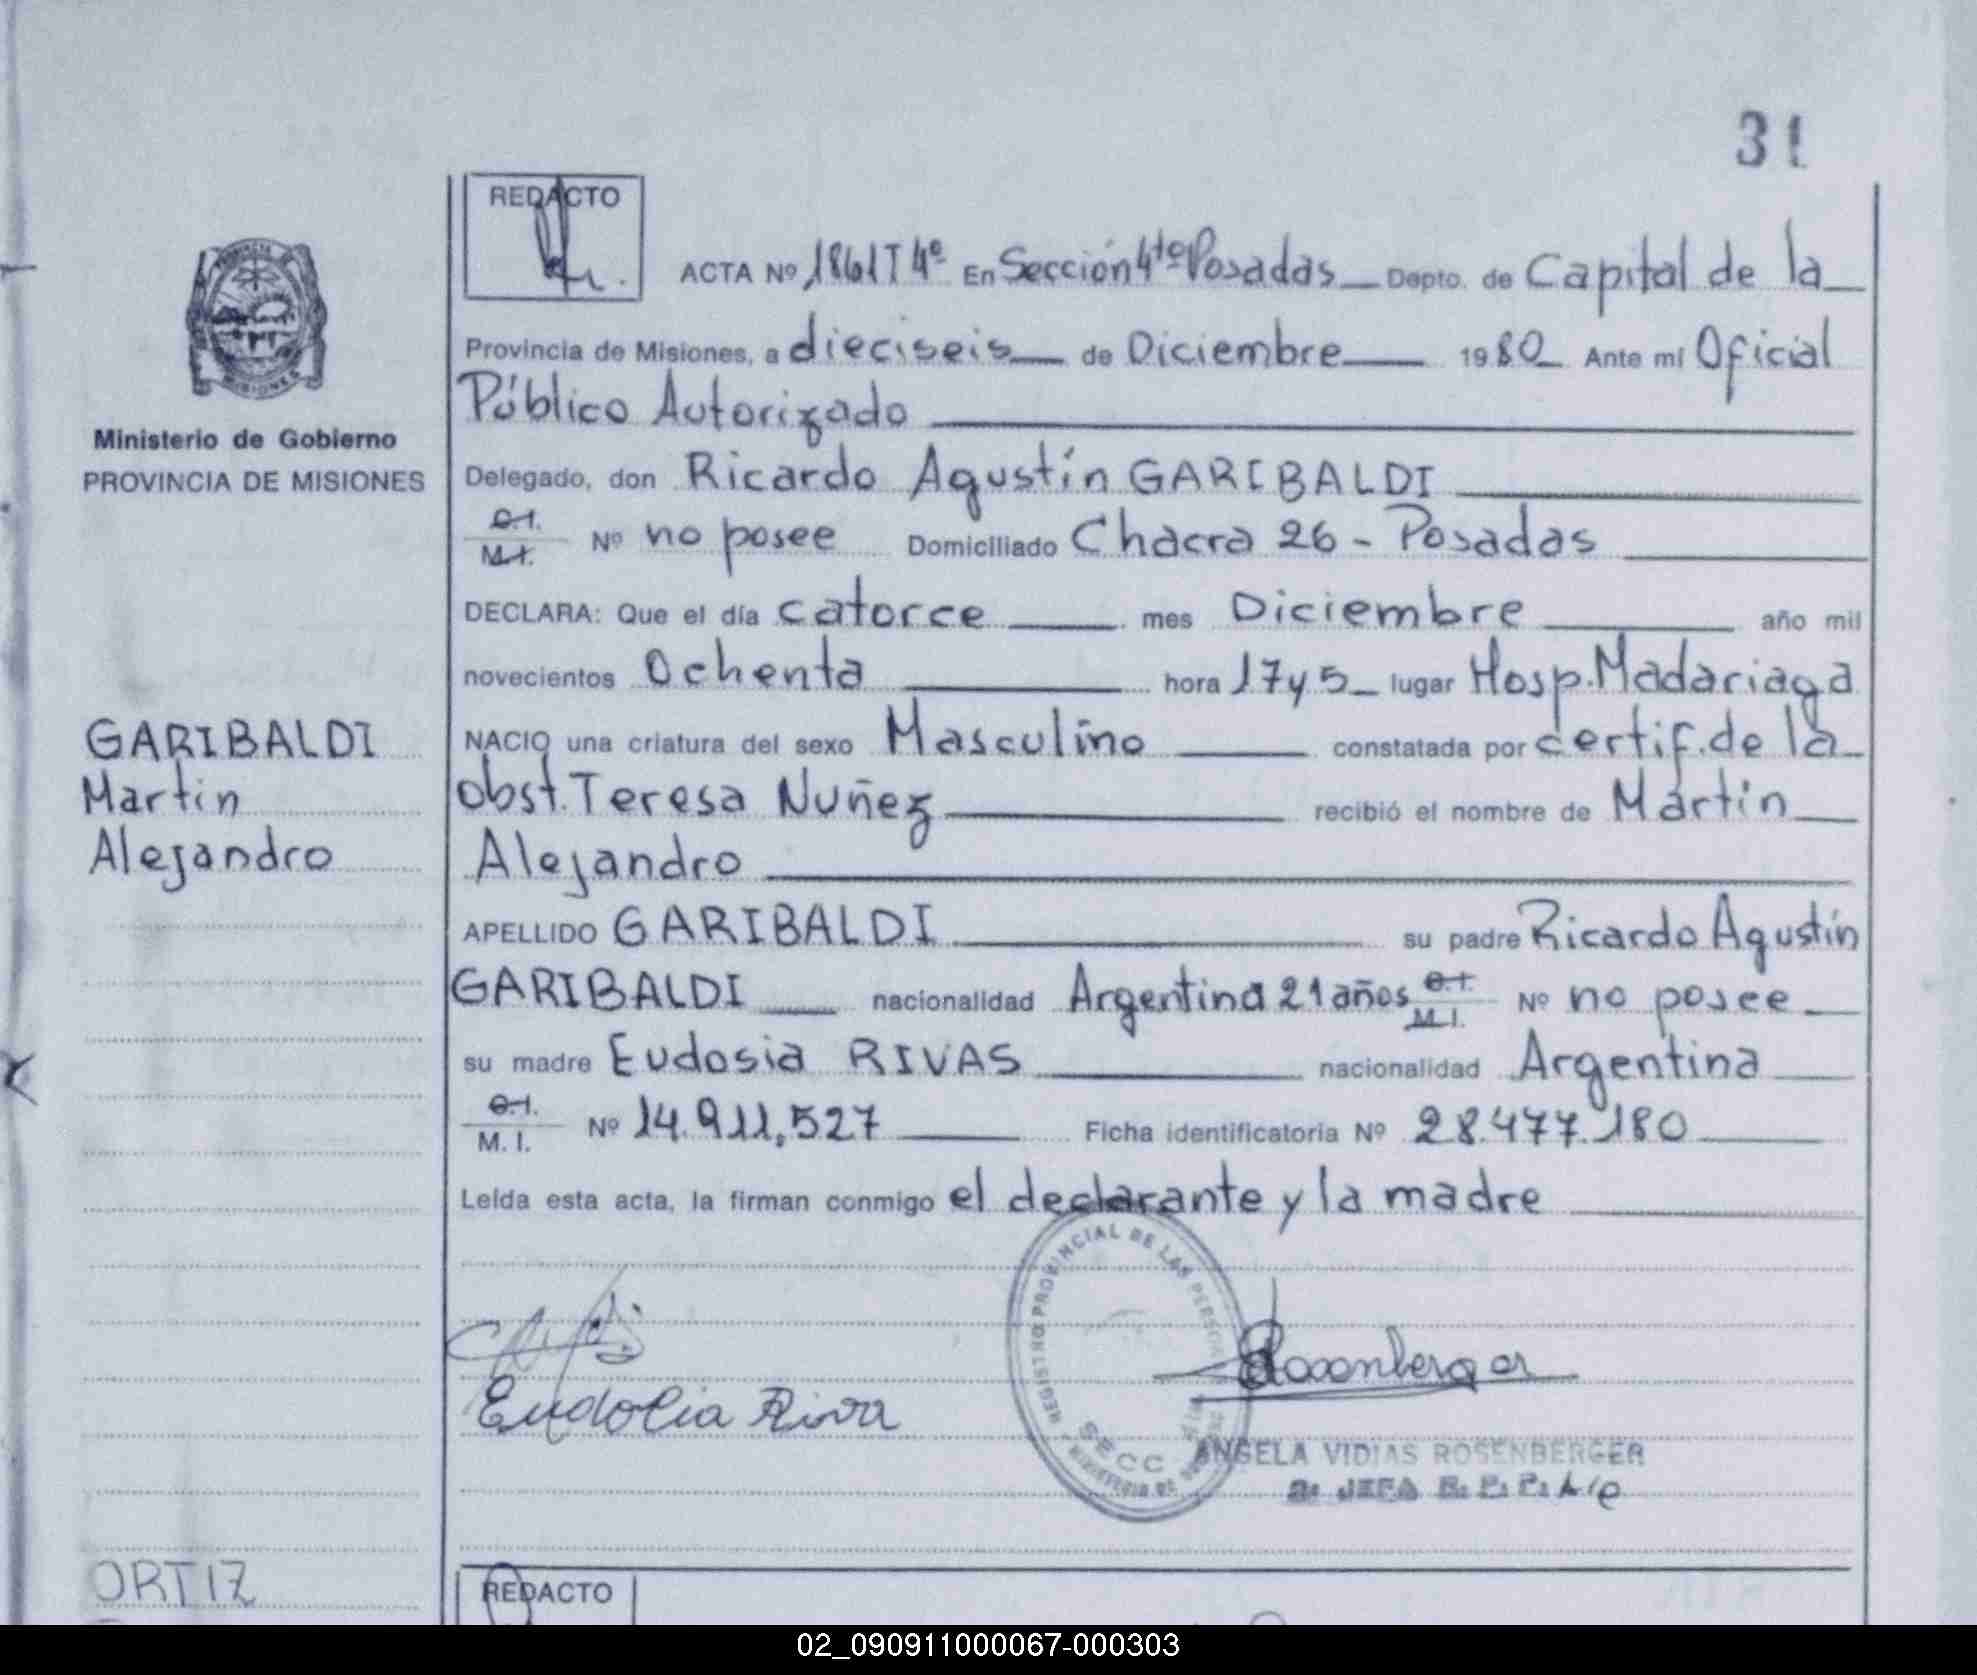 31
REDACTO
ACTA Nº 1861 T 4º En Sección 4tº Posadas Depto. de Capital de la
Provincia de Misiones, a dieciseis de Diciembre 1980 Ante mí Oficial
Público Autorizado
Ministerio de Gobierno
PROVINCIA DE MISIONES
Delegado, don Ricardo Agustín GARIBALDI
C.I.
M.I. Nº no posee Domiciliado Chacra 26 - Posadas
DECLARA: Que el día catorce mes Diciembre año mil
novecientos Ochenta hora 17 y 5 lugar Hosp. Madariaga
GARIBALDI
Martín
Alejandro
NACIO una criatura del sexo Masculino constatada por certif. de la
obst. Teresa Nuñez recibió el nombre de Martín
Alejandro
APELLIDO GARIBALDI su padre Ricardo Agustín
GARIBALDI nacionalidad Argentina 21 años C.I. M.I. Nº no posee
su madre Eudosia RIVAS nacionalidad Argentina
C.I.
M.I. Nº 14.911,527 Ficha identificatoria Nº 28.477.180
Leída esta acta, la firman conmigo el declarante y la madre
REGISTRO PROVINCIAL DE LAS PERSONAS
SECC
Eudosia Riva
Rosenberger
ANGELA VIDIAS ROSENBERGER
2º JEFA R. P. P. A/c
ORTIZ
REDACTO
02_090911000067-000303